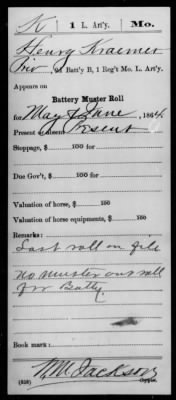 K | 1 L. Art'y. | Mo.
Henry Kraemer
Priv, of Batt'y B, 1 Reg't Mo. L. Art'y.
Appears on
Battery Muster Roll
for May & June, 1864.
Present or absent Present
Stoppage, $ 100 for
Due Gov't, $ 100 for
Valuation of horse, $ 100
Valuation of horse equipments, $ 100
Remarks:
Last roll on file
no muster out roll
for Batty
Book mark:
W M Jackson
(358) Copyist.